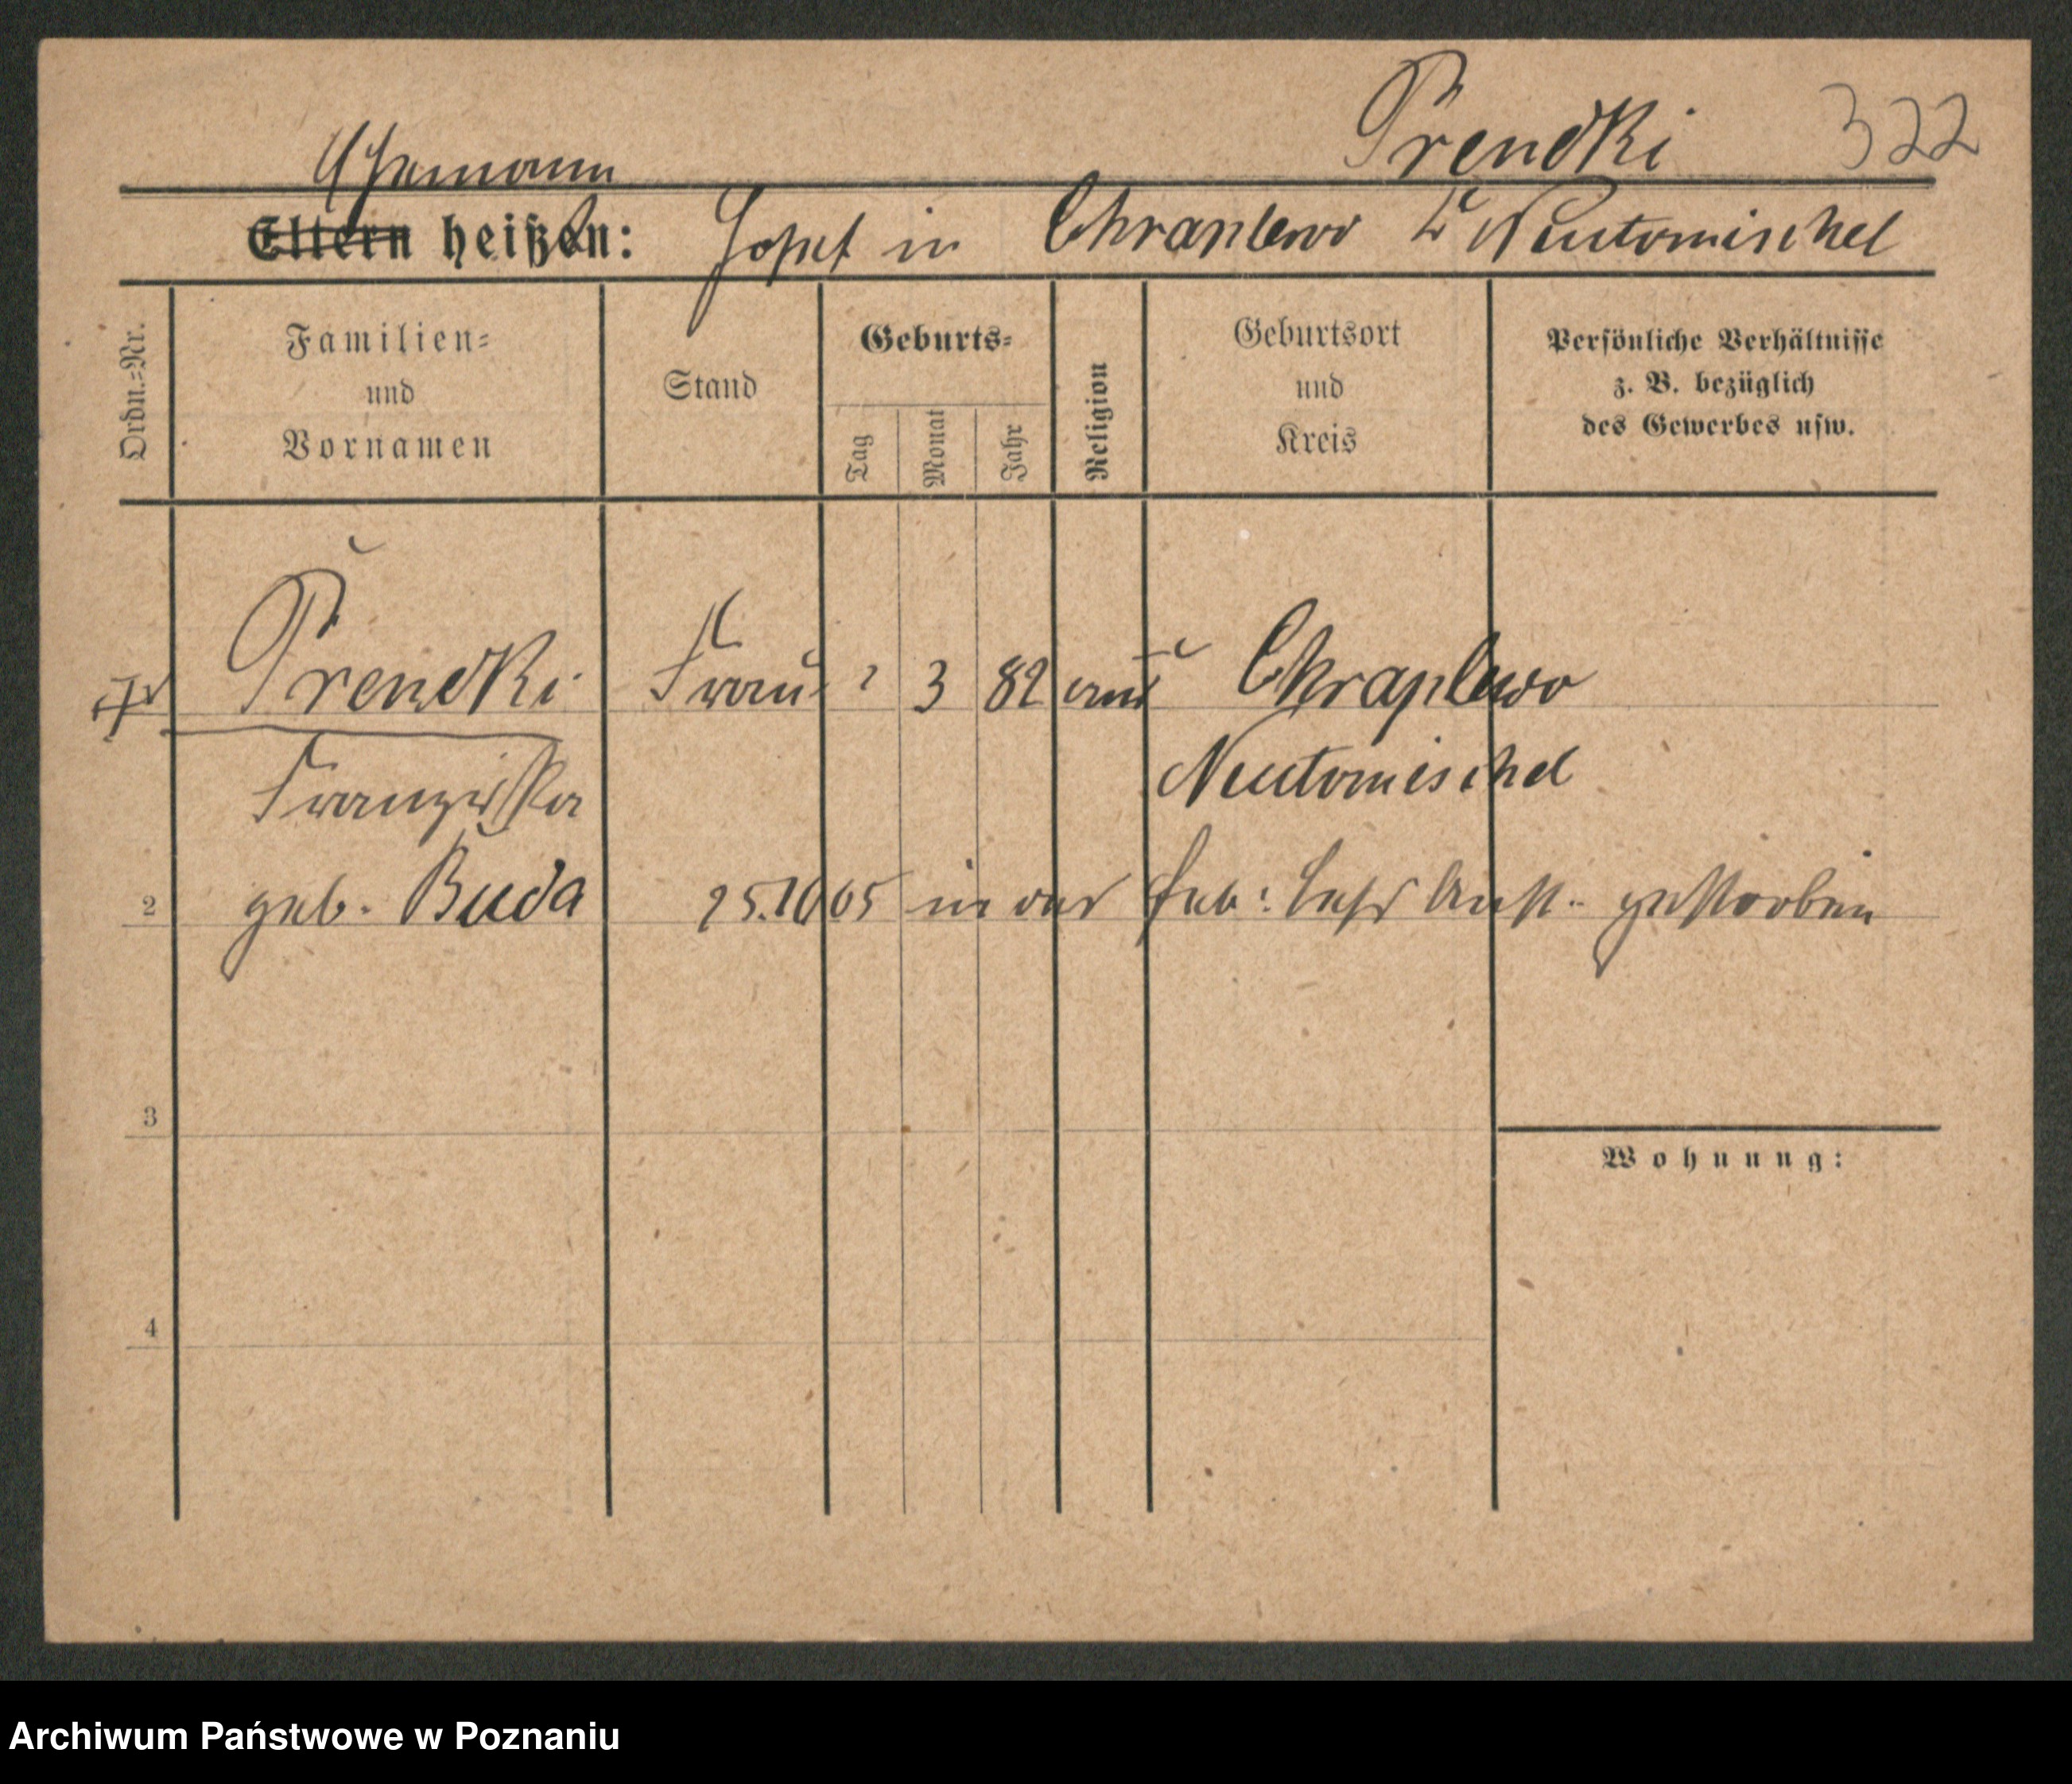 Prendki 322
Ehemann
Eltern heißen: Josef in Chraplewo Kr Neutomischel
Ordn.=Nr.
Familien=
und
Vornamen
Stand
Geburts=
Tag
Monat
Jahr
Religion
Geburtsort
und
Kreis
Persönliche Verhältnisse
z. B. bezüglich
des Gewerbes usw.
Prendki Frau ? 3 82 aus Chraplewo
Franziska Neutomischel
2 geb. Buda 25.10 05 in der Geb: Lehr Anst. gestorben
3
Wohnung:
4
Archiwum Państwowe w Poznaniu